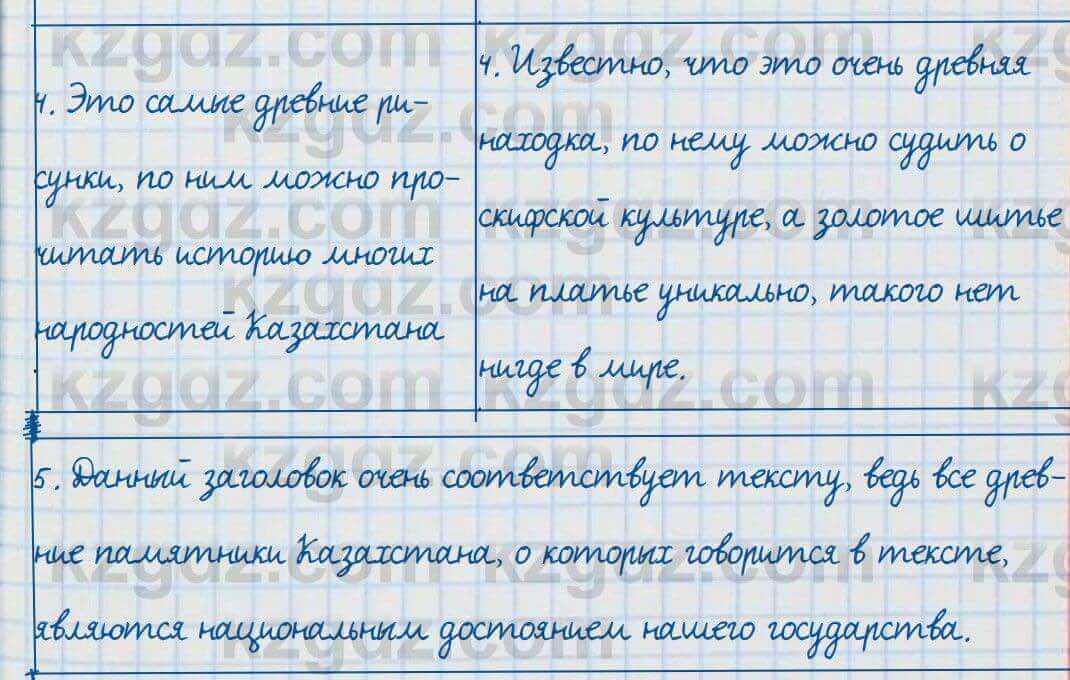 4. Это самые древние ри-
сунки, по ним можно про-
читать историю многих
народностей Казахстана
4. Известно, что это очень древняя
находка, по нему можно судить о
скифской культуре, а золотое шитье
на платье уникально, такого нет
нигде в мире.
5. Данный заголовок очень соответствует тексту, ведь все древ-
ние памятники Казахстана, о которых говорится в тексте,
являются национальным достоянием нашего государства.
kzgdz.com